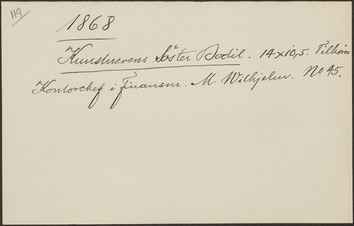 119.
1868
Kunstnerens Søster Bodil. 14x10,5. Tilhører
Kontorchef i Finansm. M. Wilhjelm. No 45.